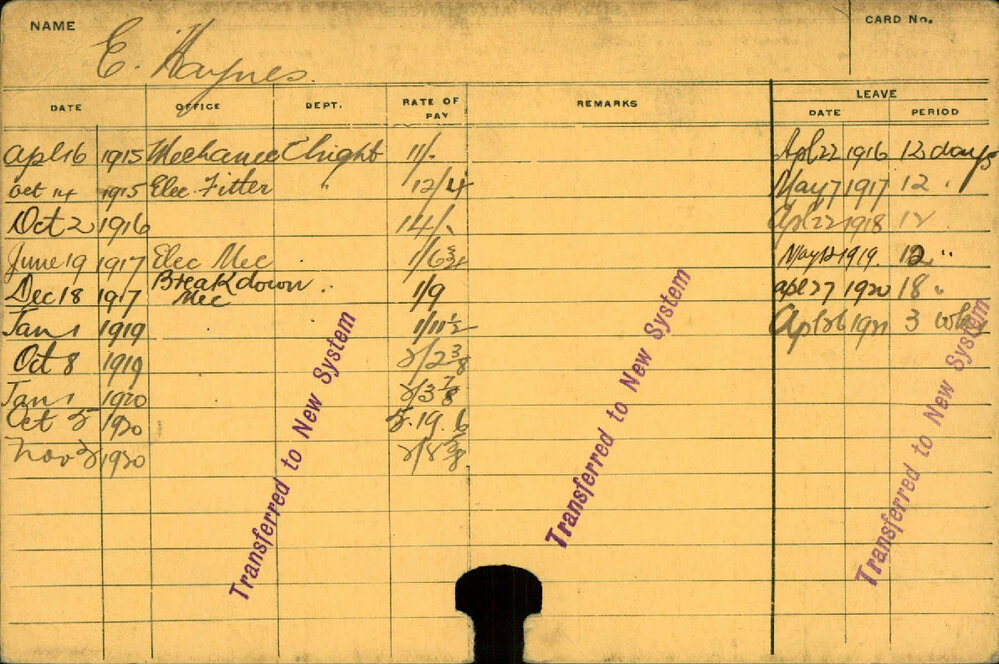 NAME E. Haynes. CARD No.
DATE OFFICE DEPT. RATE OF PAY REMARKS LEAVE
DATE PERIOD
Apl 16 1915 Mechanic Elright 11/- Apl 22 1916 12 days
Oct 14 1915 Elec Fitter " 12/4 May 7 1917 12 "
Oct 2 1916 14/- Apl 22 1918 12
June 19 1917 Elec Mec 1/6 3/4 May 12 1919. 12 "
Dec 18 1917 Breakdown Mec " 1/9 apl 27 1920 18 "
Jan 1 1919 1/11 1/2 Apl 26 1921 3 wks
Oct 8 1919 2/2 3/8
Jan 1 1920 2/3 7/8
Oct 5 1920 5.19.6
Nov 2 1920 2/8 5/8
Transferred to New System
Transferred to New System
Transferred to New System